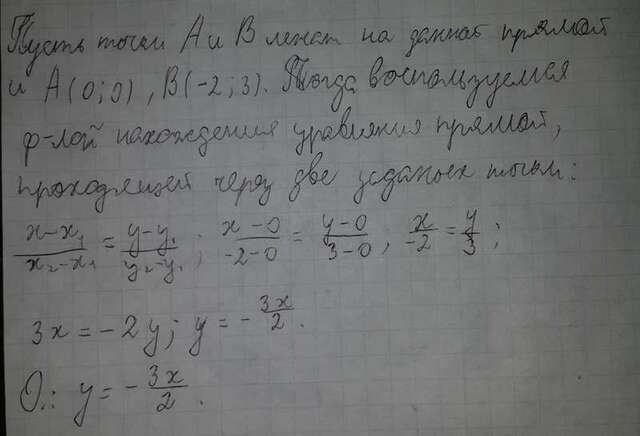 Пусть точки A и B лежат на данной прямой
и A(0;0), B(-2;3). Тогда воспользуемся
ф-лой нахождения уравнения прямой,
проходящей через две заданых точки:
\frac{x-x_1}{x_2-x_1} = \frac{y-y_1}{y_2-y_1}; \frac{x-0}{-2-0} = \frac{y-0}{3-0}; \frac{x}{-2} = \frac{y}{3};
3x = -2y; y = -\frac{3x}{2}.
О.: y = -\frac{3x}{2}.